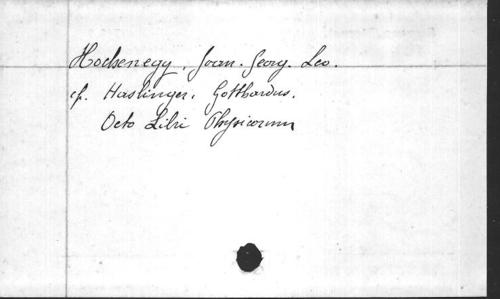 Hochenegy, Joan. Georg. Leo.
cf. Haslinger, Gotthardus.
Octo Libri Physicorum